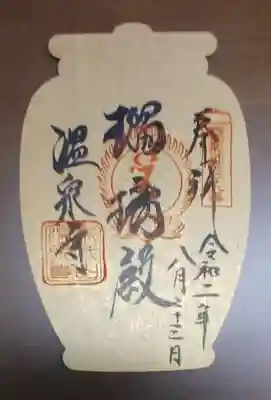 奉拝 令和二年
八月二十三日
瑠璃殿
温泉寺